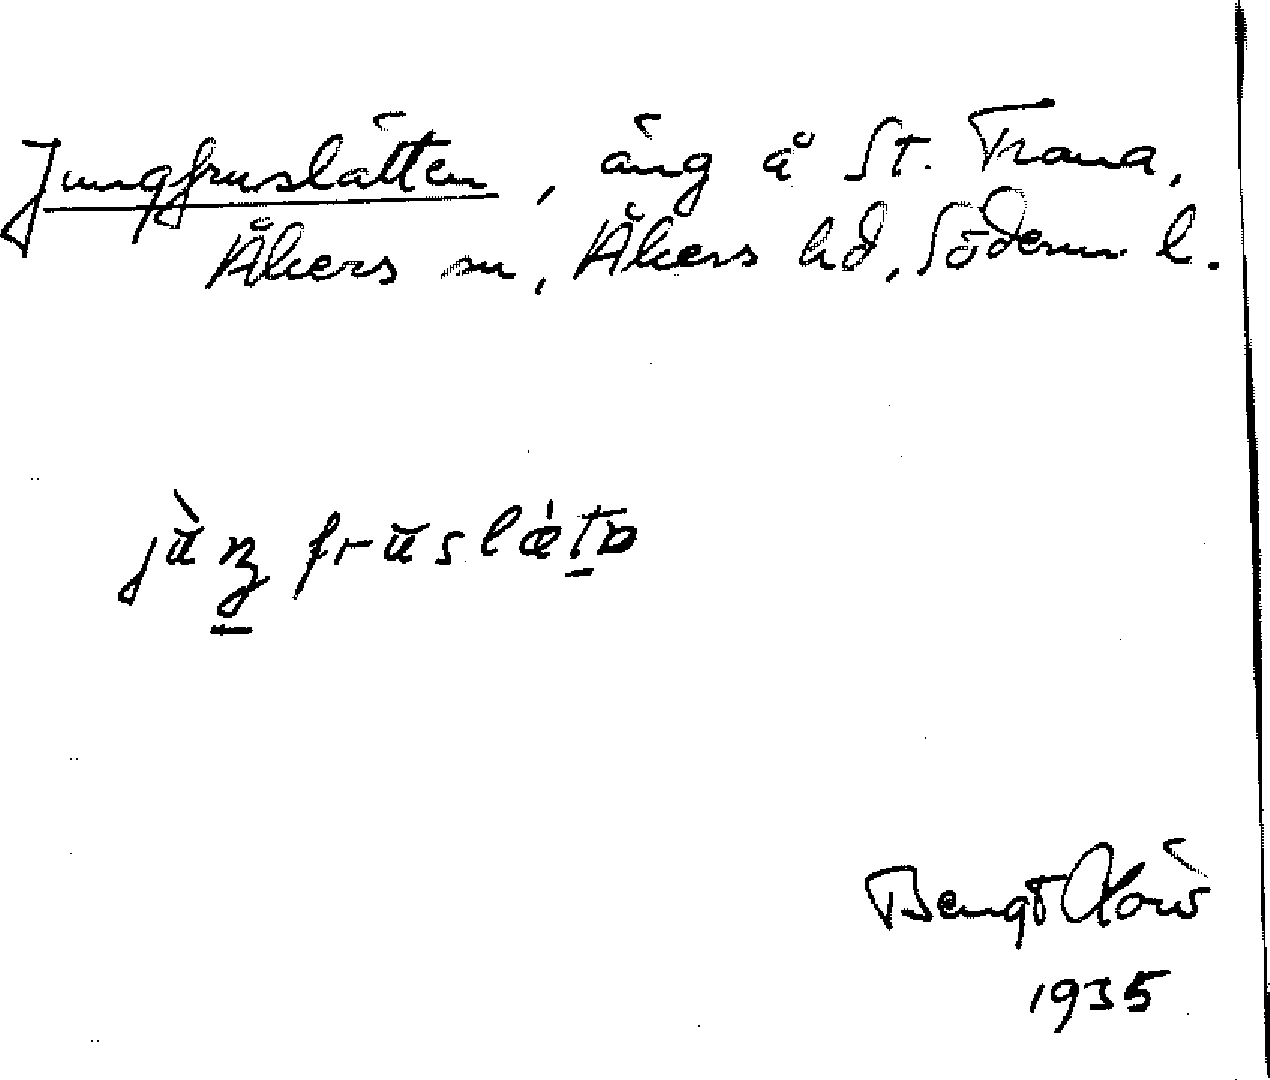 Jungfruslätten, äng å St. Trana,
Åkers sn, Åkers hd, Söderm l.
Bengt
1935